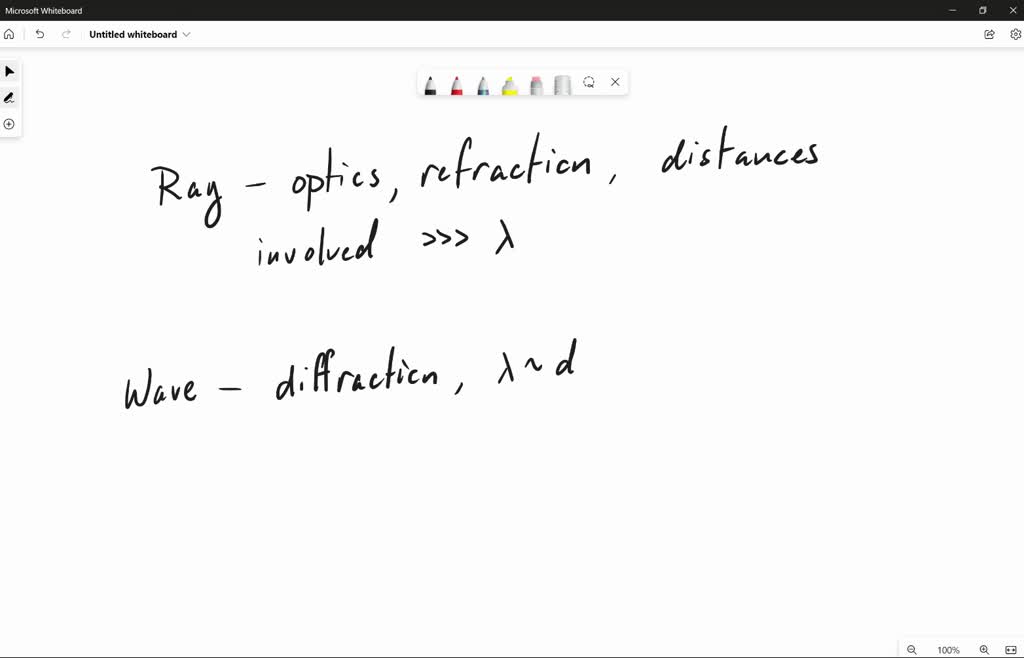 Microsoft Whiteboard
Untitled whiteboard
Ray – optics, refraction, distances
involved >>> λ
Wave – diffraction, λ ~ d
100%